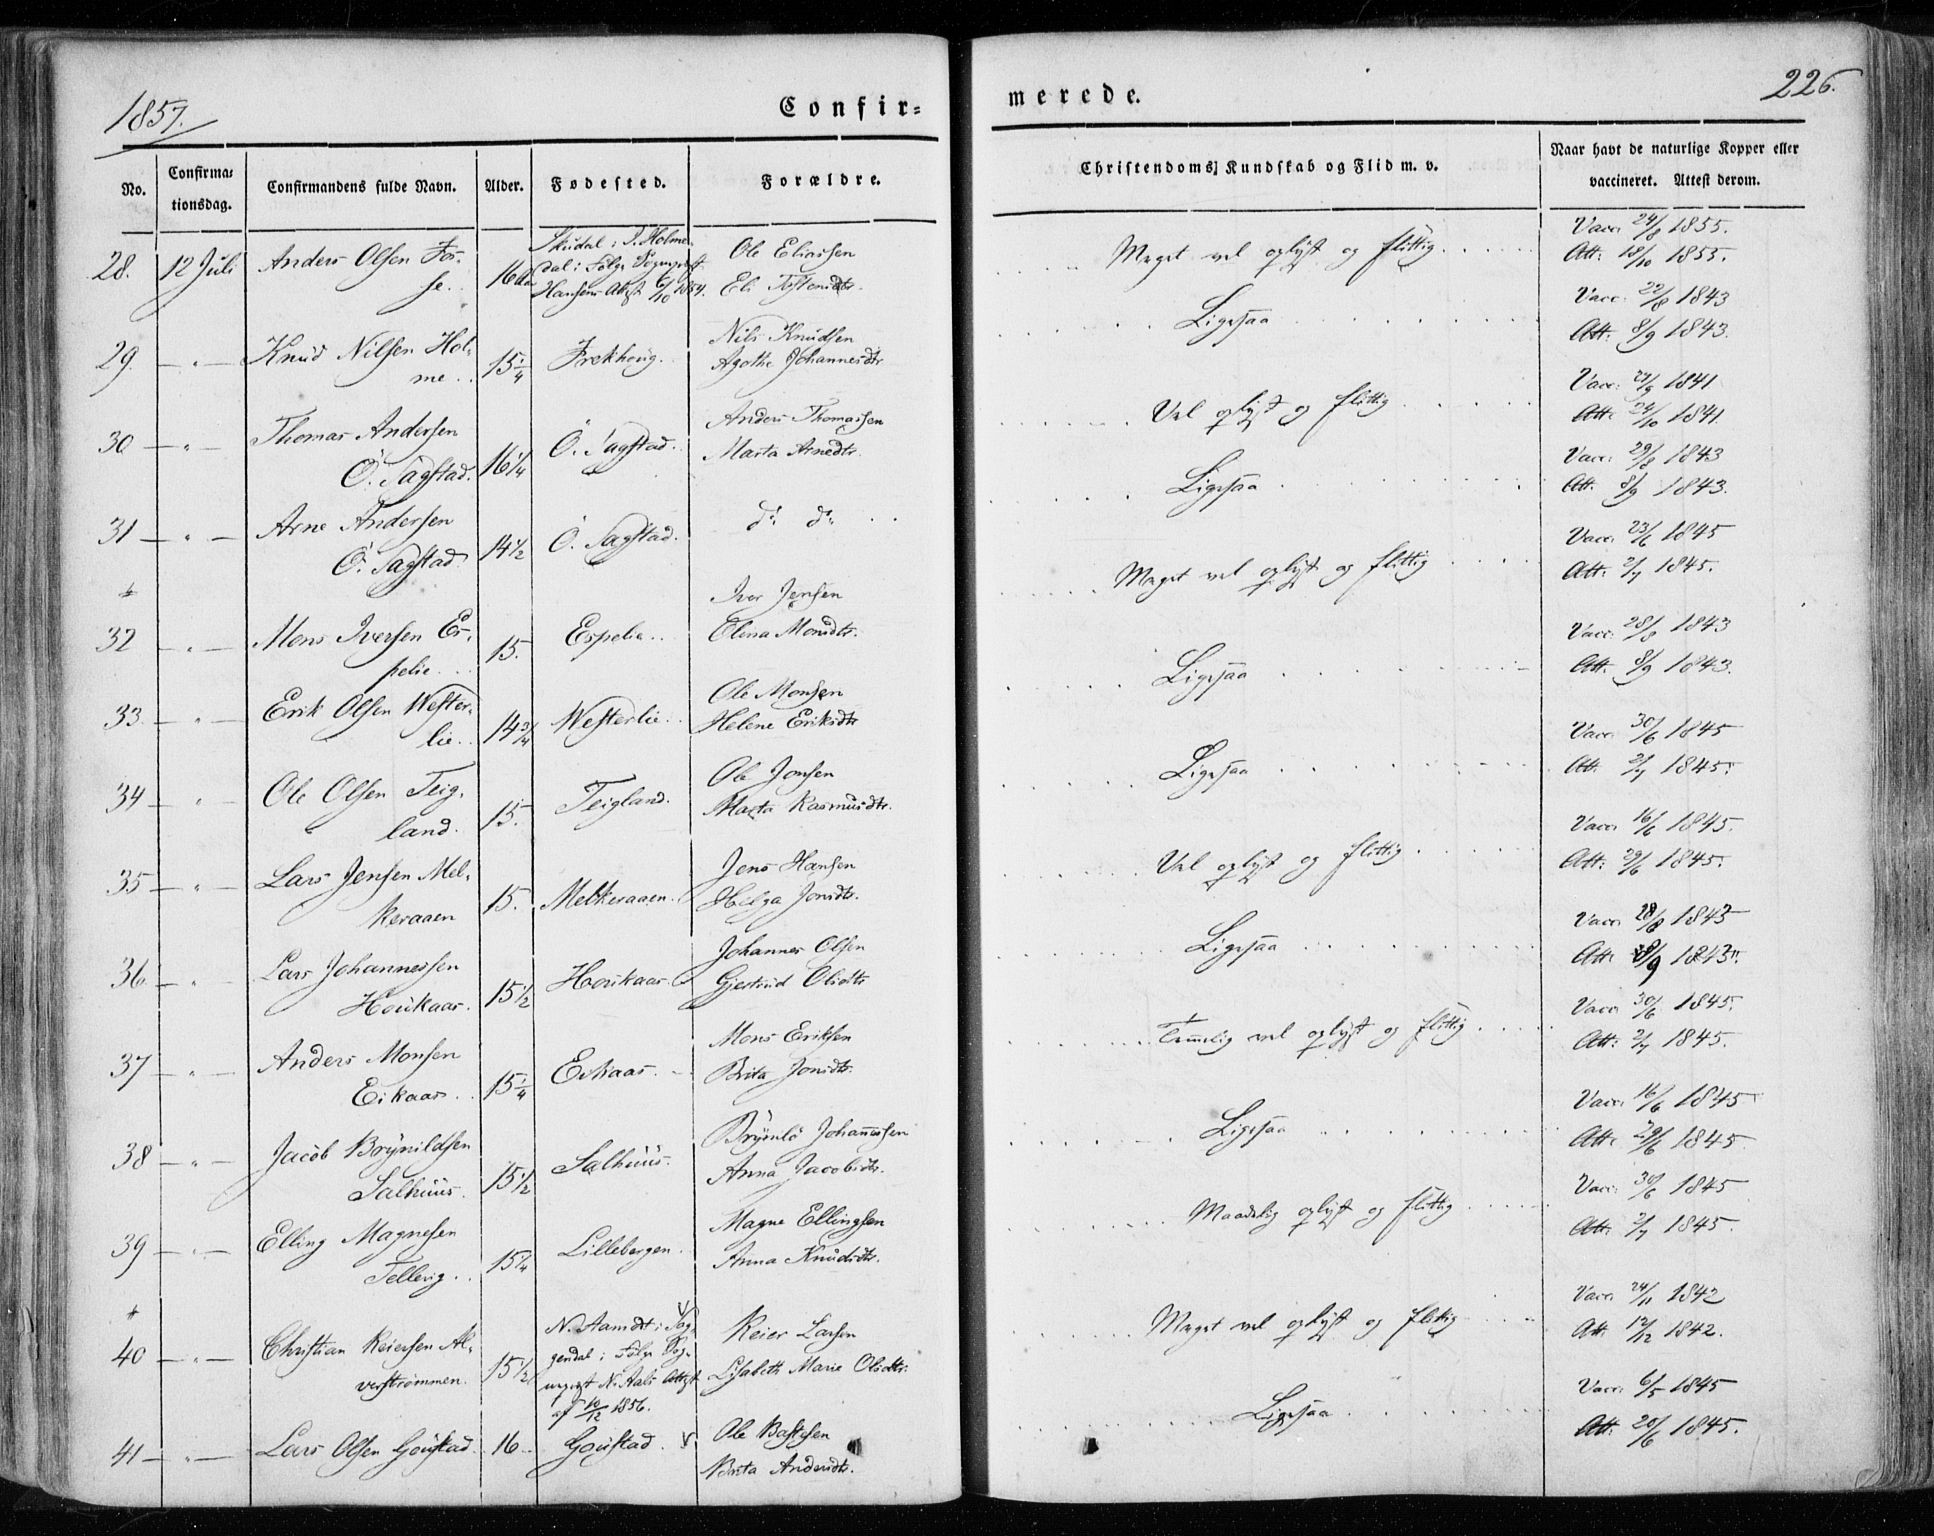 1857.
Confir=
merede.
226.
No.
Confirma=
tionsdag.
Confirmandens fulde Navn.
Alder.
Fødested.
Forældre.
Christendoms Kundskab og Flid m. v.
Naar havt de naturlige Kopper eller
vaccineret. Attest derom.
28. 12 Juli Anders Olsen Fos-
se.
16
dal i Følge
Hansens Attest 6/10 1854.
Ole Eliassen
Eli
Meget vel oplyst og flittig
Vacc. 24/8 1855.
Att: 18/10 1855.
29. — " — Knud Nilsen Hol-
me
15 1/4
Frekhoug.
Nils Knudsen
Agathe Johannesdtr
Ligesaa
Vacc. 22/8 1843
Att: 8/9 1843.
30 — " — Thomas Andersen
Ö. Sagstad.
16 1/4
Ö. Sagstad.
Anders Thomassen
Marta Arnedtr.
Vel oplyst og flittig
Vacc: 21/9 1841
Att: 24/10 1841.
31 — " — Arne Andersen
Ö. Sagstad
14 1/2
Ö. Sagstad.
do do
Ligesaa
Vacc: 29/8 1843
Att. 8/9 1843.
32 — " — Mons Iversen Es-
pelie
15.
Espelie
Iver Jensen
Olina Monsdtr.
Meget vel oplyst og flittig
Vacc. 23/6 1845
Att: 2/7 1845.
33 — " — Erik Olsen Wester-
lie
14 3/4
Westerlie
Ole Monsen
Helene Eriksdtr
Ligesaa
Vacc: 28/8 1843
Att. 8/9 1843.
34 — " — Ole Olsen Teig-
land.
15.
Teigland.
Ole Jonsen
Marta Rasmusdtr.
Ligesaa
Vacc. 30/6 1845
Att. 2/7 1845.
35 — " — Lars Jensen Mel-
keraaen
15.
Melkeraaen.
Jens Hansen
Helga Jonsdtr.
Vel oplyst og flittig
Vacc. 16/6 1845.
Att: 29/6 1845.
36 — " — Lars Johannessen
Houkaas.
15 1/2
Houkaas
Johannes Olsen
Gjertrud Olsdtr
Ligesaa
Vacc. 28/8 1843
Att. 8/9 1843.
37 — " — Anders Monsen
Eikaas
15 1/4
Eikaas.
Mons Eriksen
Brita Jonsdtr.
Temmelig vel oplyst og flittig
Vacc. 30/6 1845.
Att: 2/7 1845.
38 — " — Jacob Brynildsen
Salhuus.
15 1/2
Salhuus.
Johannessen
Anna Jacobsdtr.
Ligesaa
Vacc. 16/6 1845
Att. 29/6 1845
39 — " — Elling Magnesen
Tellevig
15 1/4
Lillebergen.
Magne Ellingsen
Anna Knudsdtr.
Maadelig oplyst og flittig
Vacc. 30/6 1845
Att. 2/7 1845.
40 — " — Christian Reiersen Al-
verströmmen.
15 1/2
N. Aamdt i Sog-
gendal i Følge Sog-
nepræst N. Aals Attest
af 10/12 1856.
Reier Larsen
Lisabeth Marie Olsdtr.
Meget vel oplyst og flittig
Vacc. 24/11 1842
Att. 12/12 1842.
41 — " — Lars Olsen Goustad
16
Goustad
Ole
Brita Andersdtr.
Ligesaa
Vacc. 6/5 1845
Att. 20/6 1845.